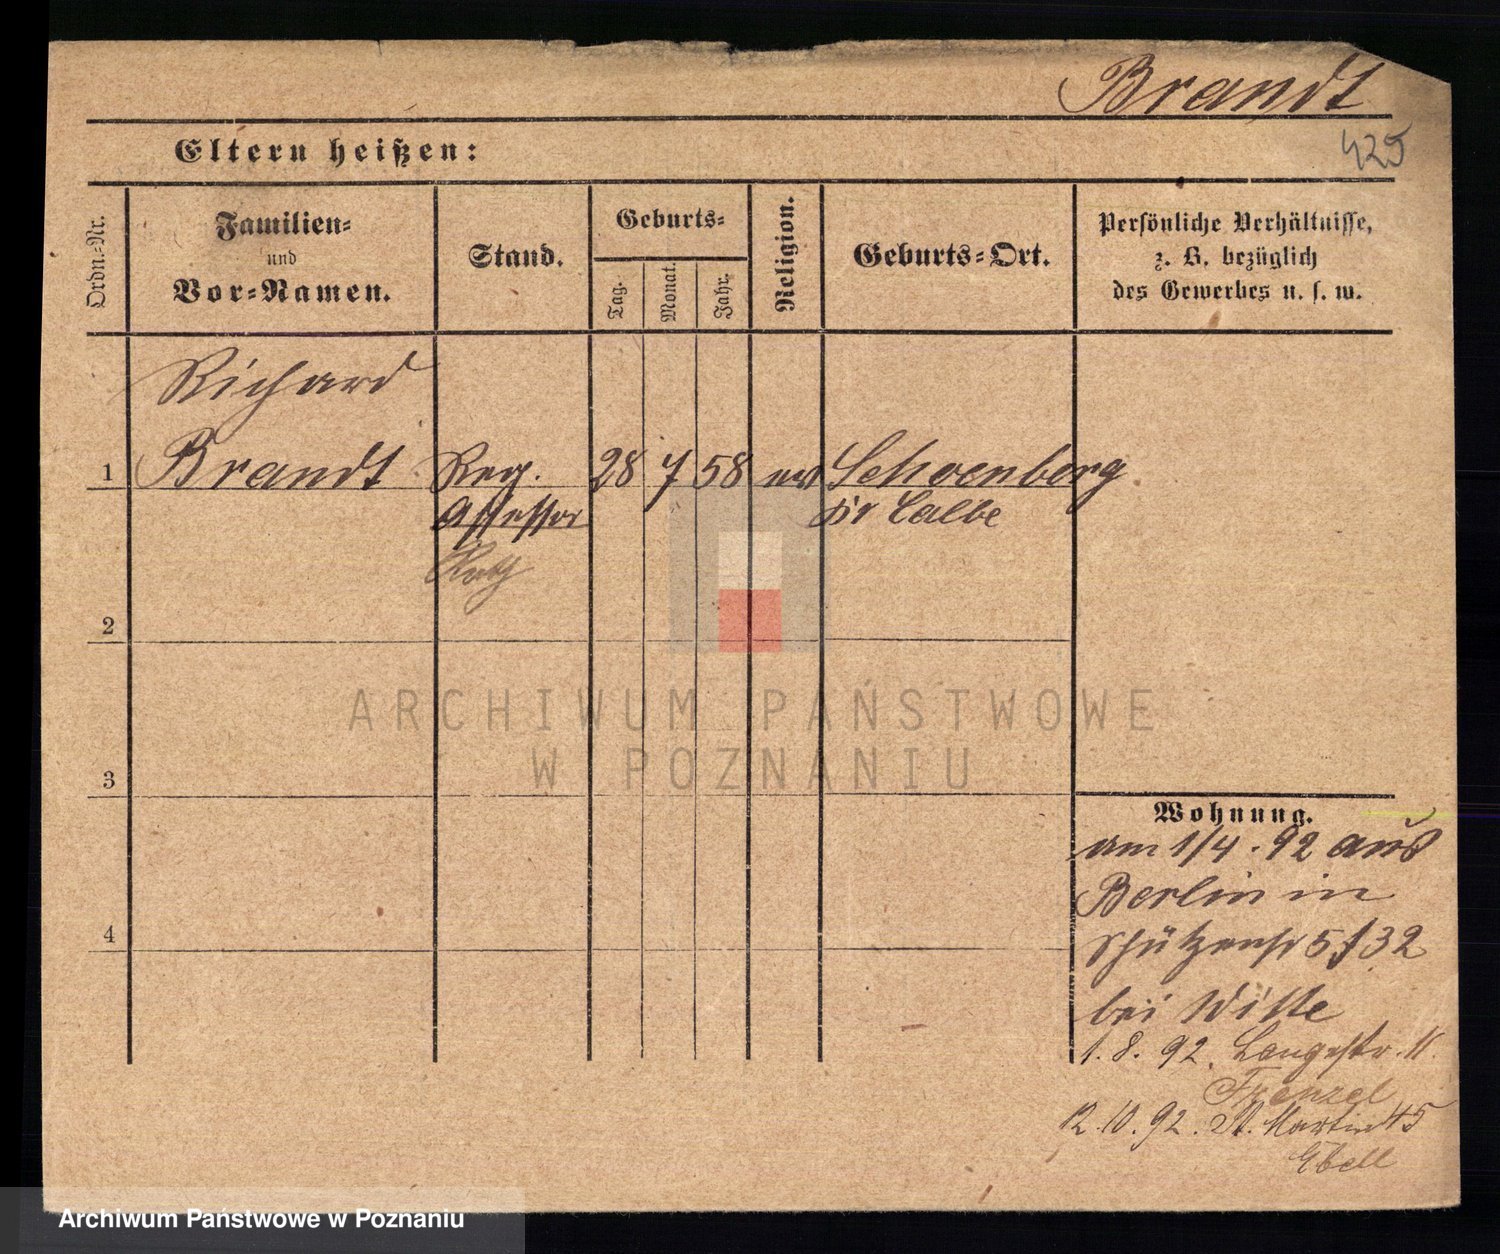 Brandt
425
Eltern heißen:
Ordn.-Nr.
Familien-
und
Vor-Namen.
Stand.
Geburts-
Tag.
Monat.
Jahr.
Religion.
Geburts-Ort.
Persönliche Verhältnisse,
z. B. bezüglich
des Gewerbes u. s. w.
Richard
1 Brandt Reg. 28 7 58 ev Schoenberg
Assessor Kr Calbe
2
3
4
Wohnung.
am 1/4. 92 aus
Berlin in
Schützenstr 5/32
bei Witte
1. 8. 92. Langestr. 11.
Frenzel
12.10.92. St. Martin 45
Ebell
ARCHIWUM PAŃSTWOWE
W POZNANIU
Archiwum Państwowe w Poznaniu